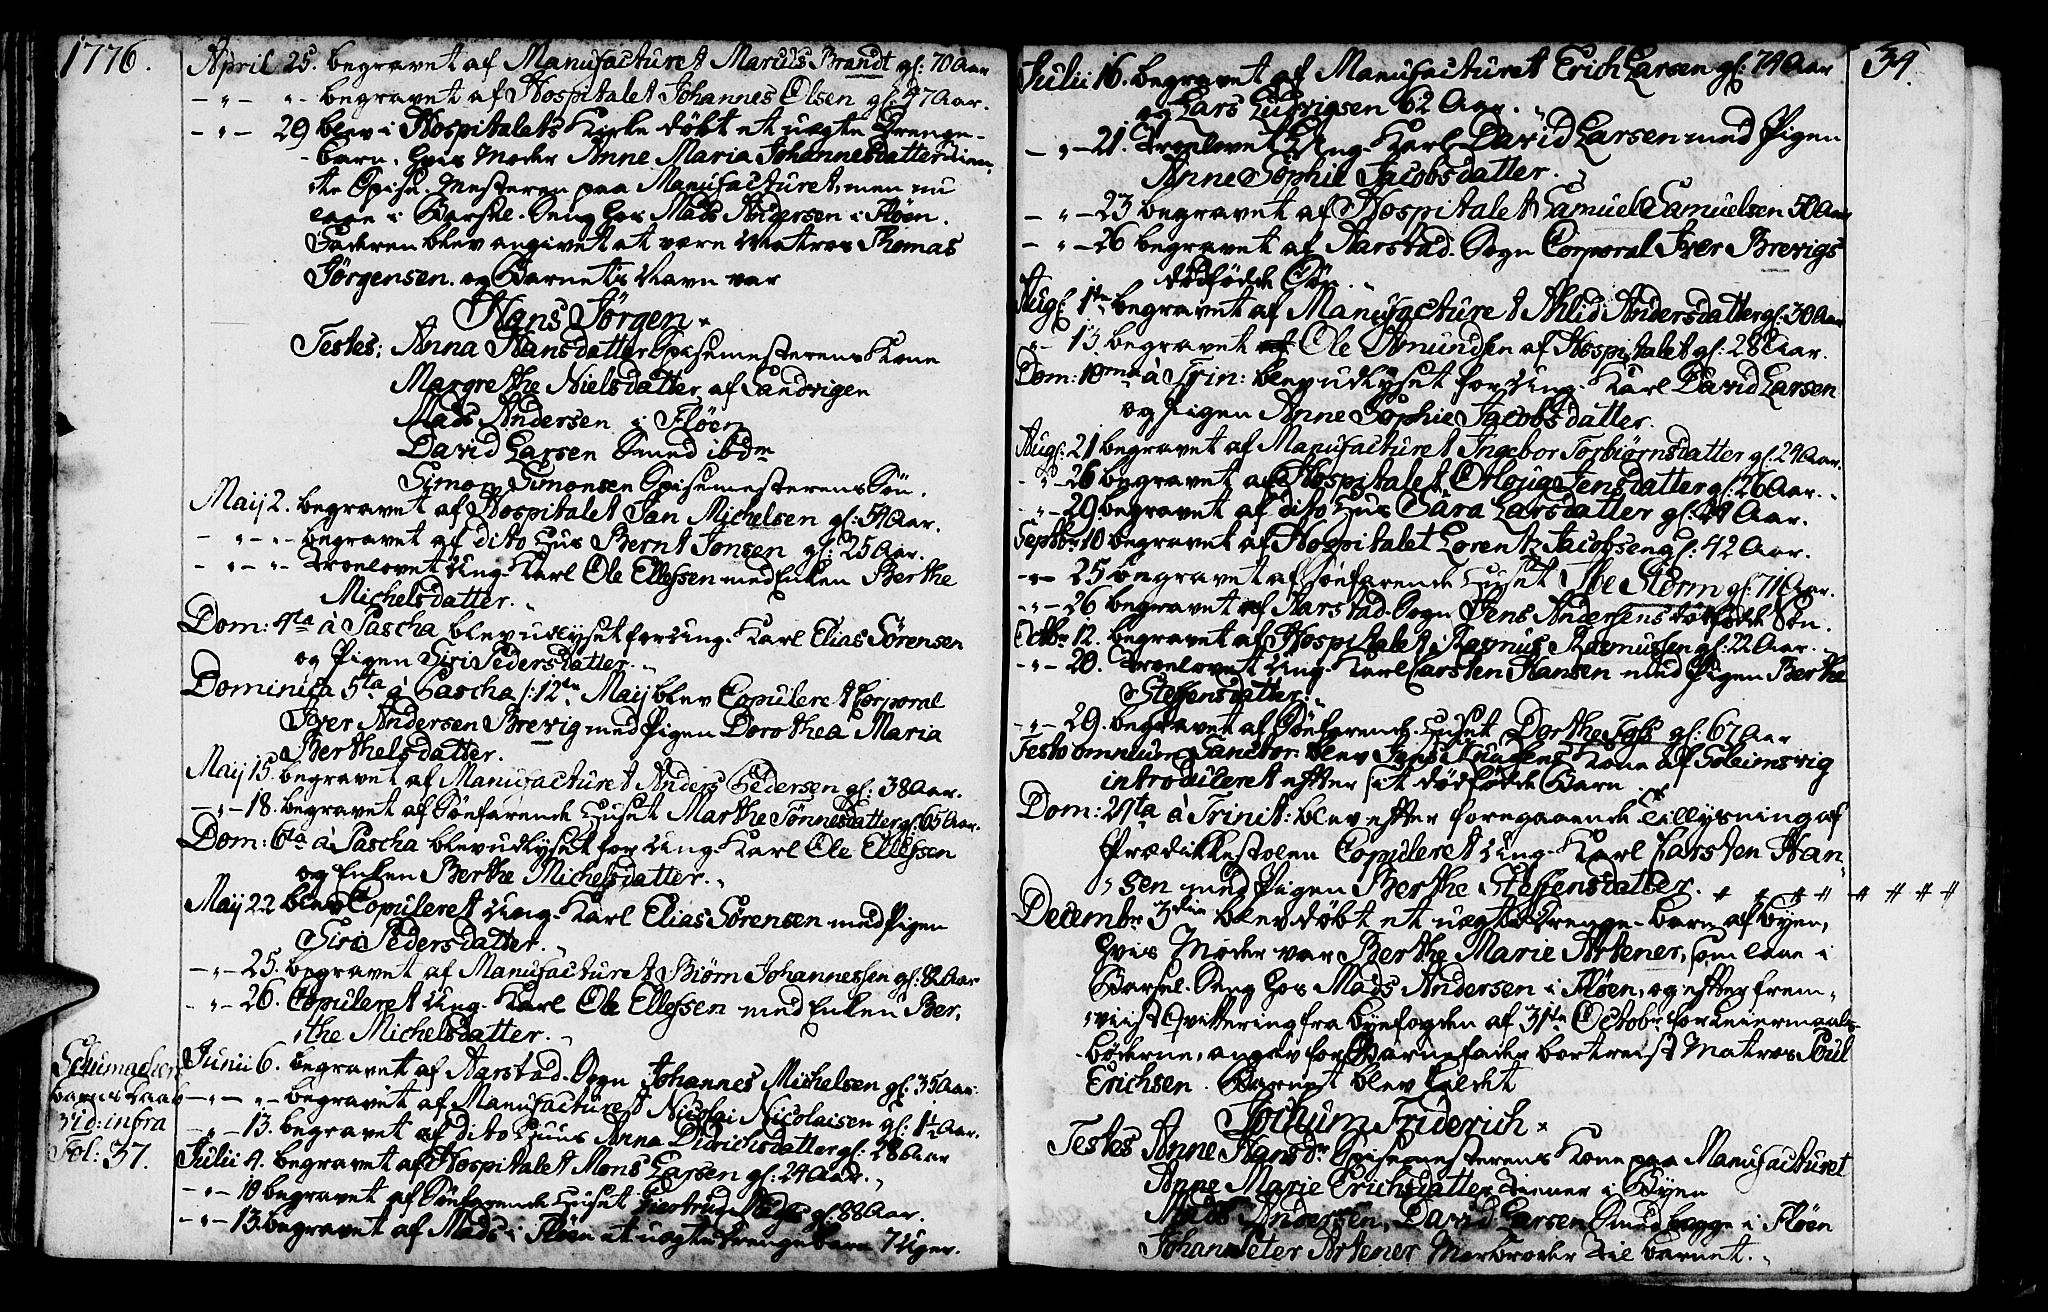 1776.
April 25. begravet af Manufacturet Marcus Brandt gl: 70 Aar
- " - " - begravet af Hospitalet Johannes Olsen gl: 47 Aar.
- " - 29 blev i Hospitalets Kirke döbt et uægte Drenge-
barn. hvis Moder Anne Maria Johannesdatter tien-
te Spise-Mesteren paa Manufacturet, men nu
laae i Barsel-Seng hos Mads Andersen i Flöen.
Faderen blev angivet at være Matros Thomas
Jörgensen. og Barnets Navn var
Hans Jörgen
Testes: Anna Hansdatter Spisemesterens Kone
Margrethe Nielsdatter af Sandvigen
Mads Andersen i Flöen
David Larsen Smed ibdm
Simon Simonsen Spisemesterens Sön.
Maij 2. begravet af Hospitalet Jan Michelsen gl: 54 Aar.
- " - " - begravet af dito Hus Bernt Jonsen gl: 25 Aar.
- " - " - Troelovet Ung-Karl Ole Ellefsen med Enken Berthe
Michelsdatter.
Dom: 4ta à Pascha blev udlyset for Ung-Karl Elias Sörensen
og Pigen Siri Pedersdatter.
Dominica 5ta à Pascha /: 12te Maij blev Copuleret Corporal
Iver Andersen Brevig med Pigen Dorothea Maria
Berthelsdatter.
Maij 15. begravet af Manufacturet Anders Pedersen gl: 38 Aar.
- " - 18. begravet af Söefarende Huset Marthe Tönnesdatter gl: 65 Aar.
Dom: 6ta à Pascha blev udlyset for Ung-Karl Ole Ellefsen
og Enken Berthe Michelsdatter.
Maij 22 blev Copuleret Ung-Karl Elias Sörensen med Pigen
Siri Pedersdatter.
- " - 25. begravet af Manufacturet Biörn Johannessen gl: 82 Aar
- " - 26. Copuleret Ung-Karl Ole Ellefsen med Enken Ber-
the Michelsdatter.
Schumachers
barns Daab
vid: infra
Fol: 37.
Junii 6. begravet af Aarstad-Sogn Johannes Michelsen gl: 35 Aar.
- " - " - begravet af Manufacturet Nicolai Nicolaisen gl: 1½ Aar.
- " - 13. begravet af dito Huus Anna Didrichsdatter gl: 28 Aar
Julii 4. begravet af Hospitalet Mons Larsen gl: 24 Aar.
- " - 10 begravet af Söefarende Huset Giertrud gl: 88 Aar.
- " - 13. begravet af Mads i Flöen et uægte Drengebarn 7 Uger.
34.
Julii 16. begravet af Manufacturet Erich Larsen gl: 74 Aar
og Lars Ludvigsen 62 Aar.
- " - 21. Troelovet Ung-Karl David Larsen med Pigen
Anne Sophie Jacobsdatter.
- " - 23 begravet af Hospitalet Samuel Samuelsen 50 Aar
- " - 26 begravet af Aarstad-Sogn Corporal Iver Brevigs
dödfödde Sön.
Augl: 1te begravet af Manufacturet Ahlid Andersdatter gl: 30 Aar
" - 13 begravet Ole Amundsen af Hospitalet gl: 28 Aar.
Dom: 10ma à Trin: blev udlyset for Ung-Karl David Larsen
og Pigen Anne Sophie Jacobsdatter.
Augl: 21 begravet af Manufacturet Ingebor Torbiörnsdatter gl: 24 Aar.
- " - 26 begravet af Hospitalet Jensdatter gl: 26 Aar.
- " - 29 begravet af dito Hus Sara Larsdatter gl: Aar.
Septbr 10 begravet af Hospitalet Lorentz Jacobsen gl: 42 Aar.
- " - 25 begravet af Söefarende Huset Ibe Storm gl: 71 Aar.
- " - 26 begravet af Aarstad-Sogn Jens Andersens dödfödde Sön.
Octbr 12. begravet af Hospitalet Rasmus Rasmussen gl: 22 Aar.
- " - 20. Troelovet Ung-Karl Carsten Hansen med Pigen Berthe
Steffensdatter.
- " - 29. begravet af Söefarende Huset Dorthe Foss gl: 67 Aar
Festo omnium Sanctor: blev Jens Knudsens Kone af Soleimsvig
introduceret efter sit dödfödde Barn.
Dom: 21ta à Trinit: blev efter foregaaende Tillysning af
Prædikkestolen Copuleret Ung-Karl Karsten Han-
sen med Pigen Berthe Steffensdatter.
Decembr 3die blev döbt et uægte Drenge-barn af Byen,
hvis Moder var Berthe Marie Artener, som laae i
Barsel-Seng hos Mads Andersen i Flöen, og efter frem-
viist Qvittering fra Byefogden af 31te Octobr for Leiermaals-
böderne, angav for Barnefader bortreist Matros Poul
Erichsen. Barnet blev kaldet
Jochum Friderich
Testes Anne Hansdr Spisemesterens Kone paa Manufacturet
Anne Marie Erichsdatter tiener i Byen
Mads Andersen, David Larsen Smed begge i Flöen
Johan Peter Artener Morbroder til barnet.